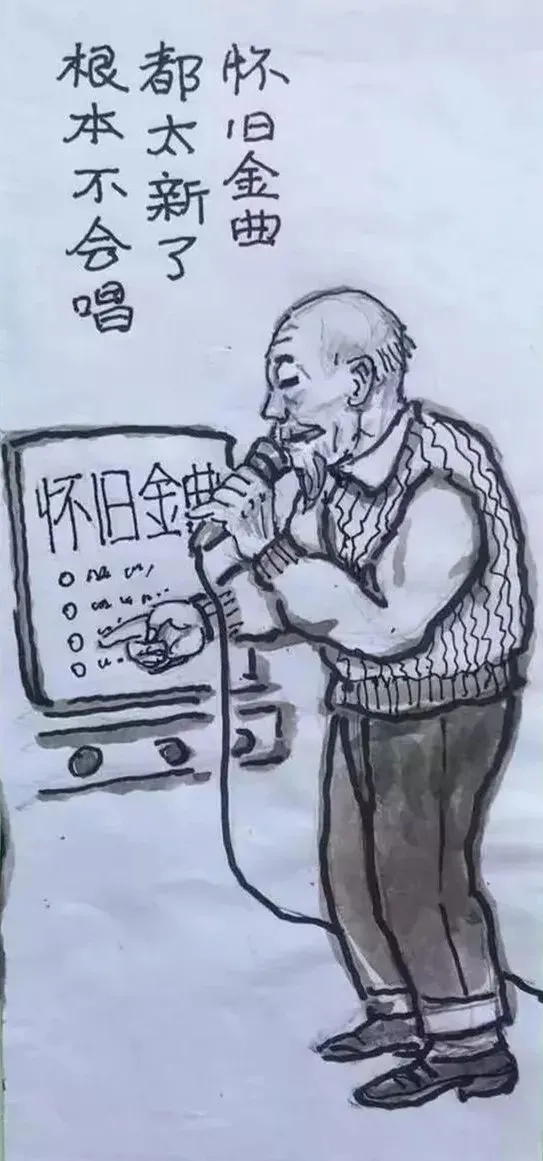 怀旧金曲
都太新了
根本不会唱
怀旧金曲